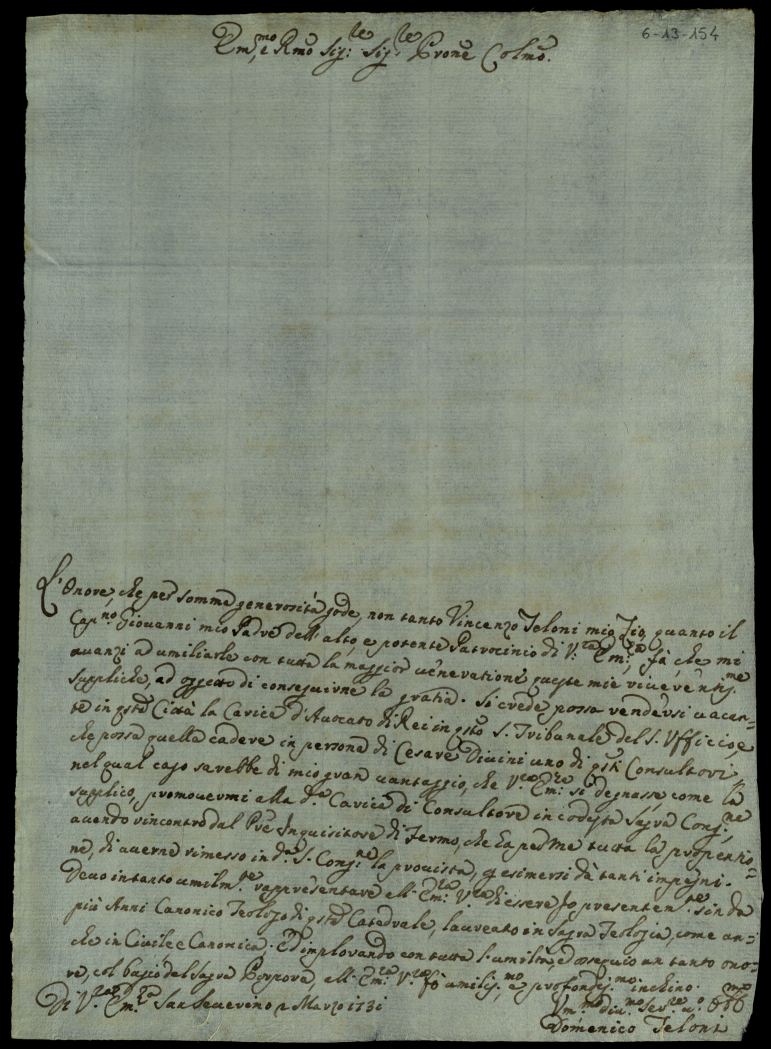 6-13-154
Em.mo e Rmo Sig.re Sig.re Prone Colmo.
L'Onore, che per somma generosità gode, non tanto Vincenzo Teloni mio Zio, quanto il
Cap.no Giovanni mio Padre dell'alto, e potente Patrocinio di V.ra Em.za, fà, che mi
avanzi ad umiliarle con tutta la maggior veneratione queste mie riverentiss.me
suppliche, ad oggetto di conseguirne la gratia. Si crede possa rendersi vacan-
te in qsta Città la Carica d'Avocato di Rei in qsto S. Tribunale del S. Vfficio, e
che possa quella cadere in persona di Cesare Divini uno di qsti Consultori,
nel qual caso sarebbe di mio gran vantaggio, che V.ra Em.za si degnasse, come la
supplico, promovermi alla d.a Carica di Consultore in codesta Sagra Cong.ne
avendo rincontro dal Pre Inquisitore di Fermo, che hà per me tutta la propentio-
ne, di averne rimesso in d.a S. Cong.ne la provista, p esimersi dà tanti impegni.
Devo intanto umilm.te rappresentare all'Em.za V.ra di essere io presentem.te, sin da
più Anni Canonico Teologo di qsta Catedrale, laureato in Sagra Teologia, come an-
che in Civile, e Canonica. Ed implorando con tutta l'umiltà, ed ossequio un tanto ono-
re, col bagio del Sagra Porpora, all'Em.za V.ra fò umiliss.mo, e profondiss.mo inchino.
Di V.ra Em.za San Severino 2 Marzo 1731
Vm.mo Div.mo Ser.re v.o Obb.mo
Domenico Teloni